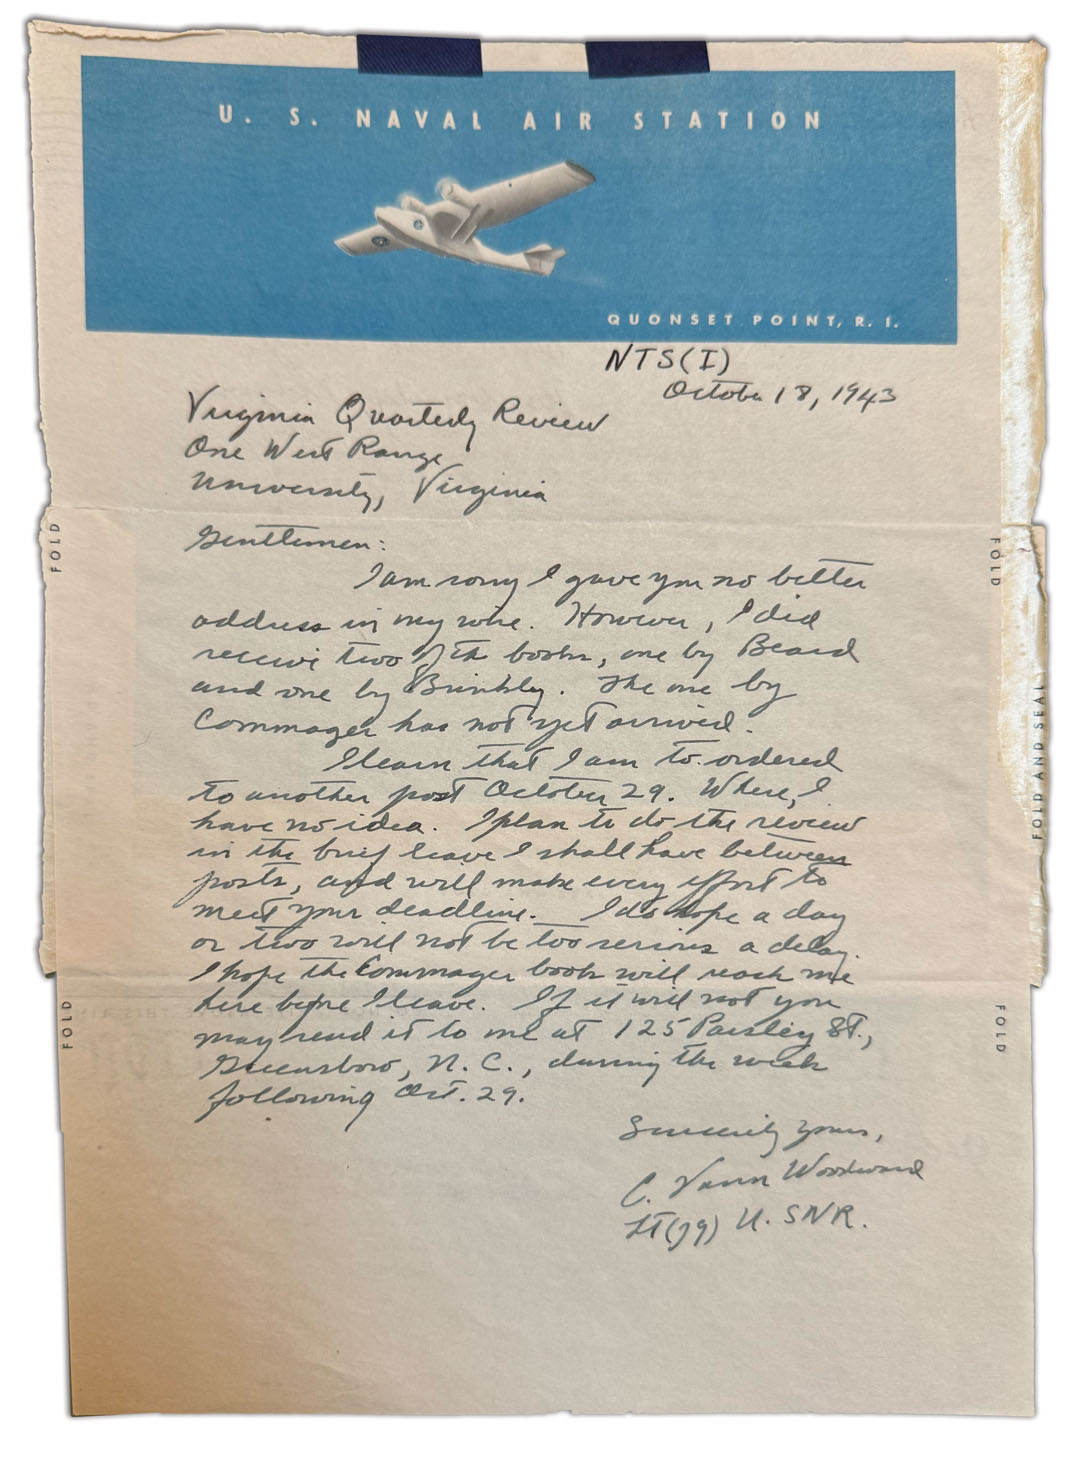 U. S. NAVAL AIR STATION
QUONSET POINT, R. I.
NTS(I)
October 18, 1943
Virginia Quarterly Review
One West Range
University, Virginia
Gentlemen:
I am sorry I gave you no better
address in my wire. However, I did
receive two of the books, one by Beard
and one by Brinkley. The one by
Commager has not yet arrived.
I learn that I am to ordered
to another post October 29. Where, I
have no idea. I plan to do the review
in the brief leave I shall have between
posts, and will make every effort to
meet your deadline. I do hope a day
or two will not be too serious a delay.
I hope the Commager book will reach me
here before I leave. If it will not you
may send it to me at 125 Paisley St.,
Greensboro, N. C., during the week
following Oct. 29.
Sincerely yours,
C. Vann Woodward
Lt(jg) U. SNR.
FOLD
FOLD
FOLD AND SEAL
FOLD
FOLD